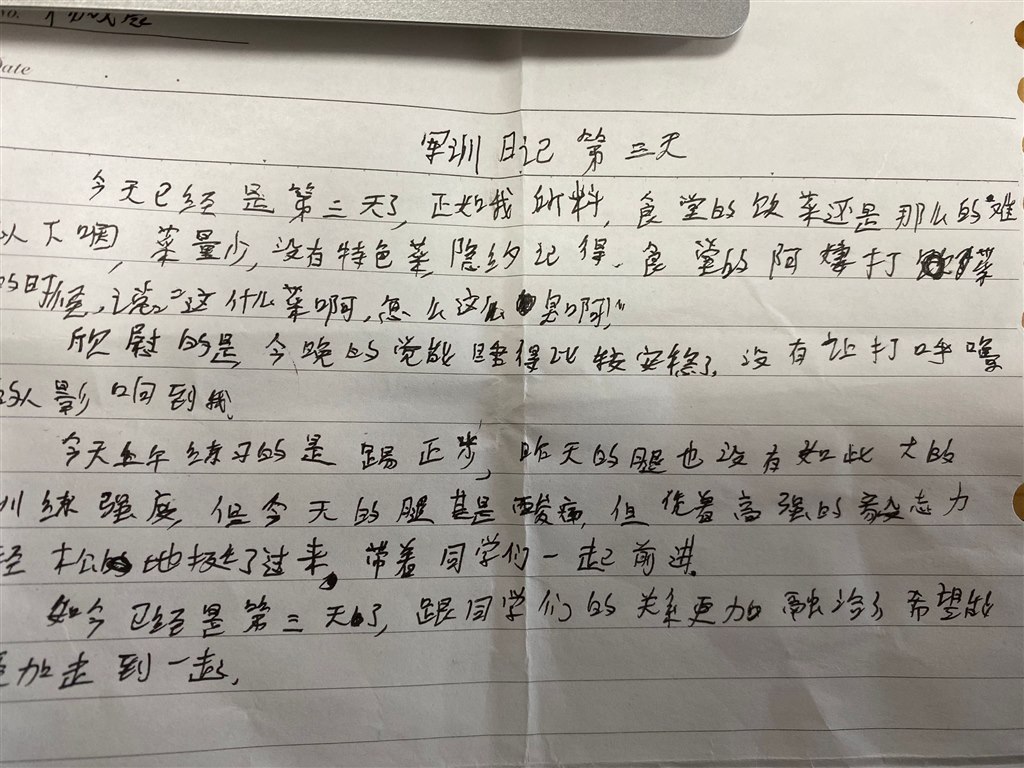 No.
Date
军训日记 第三天
今天已经是第三天了,正如我所料,食堂的饮菜还是那么的难
以下咽,菜量少,没有特色菜,隐约记得,食堂的阿姨打菜
的时候,说:"这什么菜啊,怎么这么臭啊,"
欣慰的是,今晚的觉能睡得比较安稳了,没有让打呼噜
的人影响到我
今天上午练习的是踢正步,昨天的腿也没有如此大的
训练强度,但今天的腿甚是酸痛,但凭着高强的毅志力
轻松地挺了过来,带着同学们一起前进.
如今已经是第三天了,跟同学们的关系更加融洽了希望能
更加走到一起,